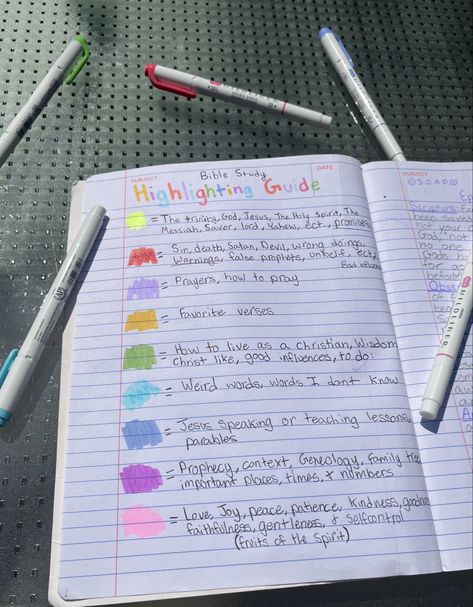 SUBJECT
Bible Study
DATE
Highlighting Guide
= The trinity, God, Jesus, The Holy Spirit, The
Messiah, Savor, lord, Yahew, ect., promises
= Sin, death, Satan, Devil, wrong doings,
Warnings, false prophets, unbelif, ect,
Bad
= Prayers, how to pray
= Favorite verses
= How to live as a christian, Wisdom
Christ like, good influences, to do:
= Weird words, words I dont know
= Jesus speaking or teaching lessons,
parables
= Prophecy, context, Geneology, Family tree,
important places, times, & numbers
= Love, Joy, peace, patience, Kindness, goodness
faithfulness, gentleness, & Selfcontrol
(fruits of the Spirit)
SUBJECT
S.O.A.P
Scripture:
been save
not your
God, "not
no one
Gods h
for go
before
Obse
MILDLINER